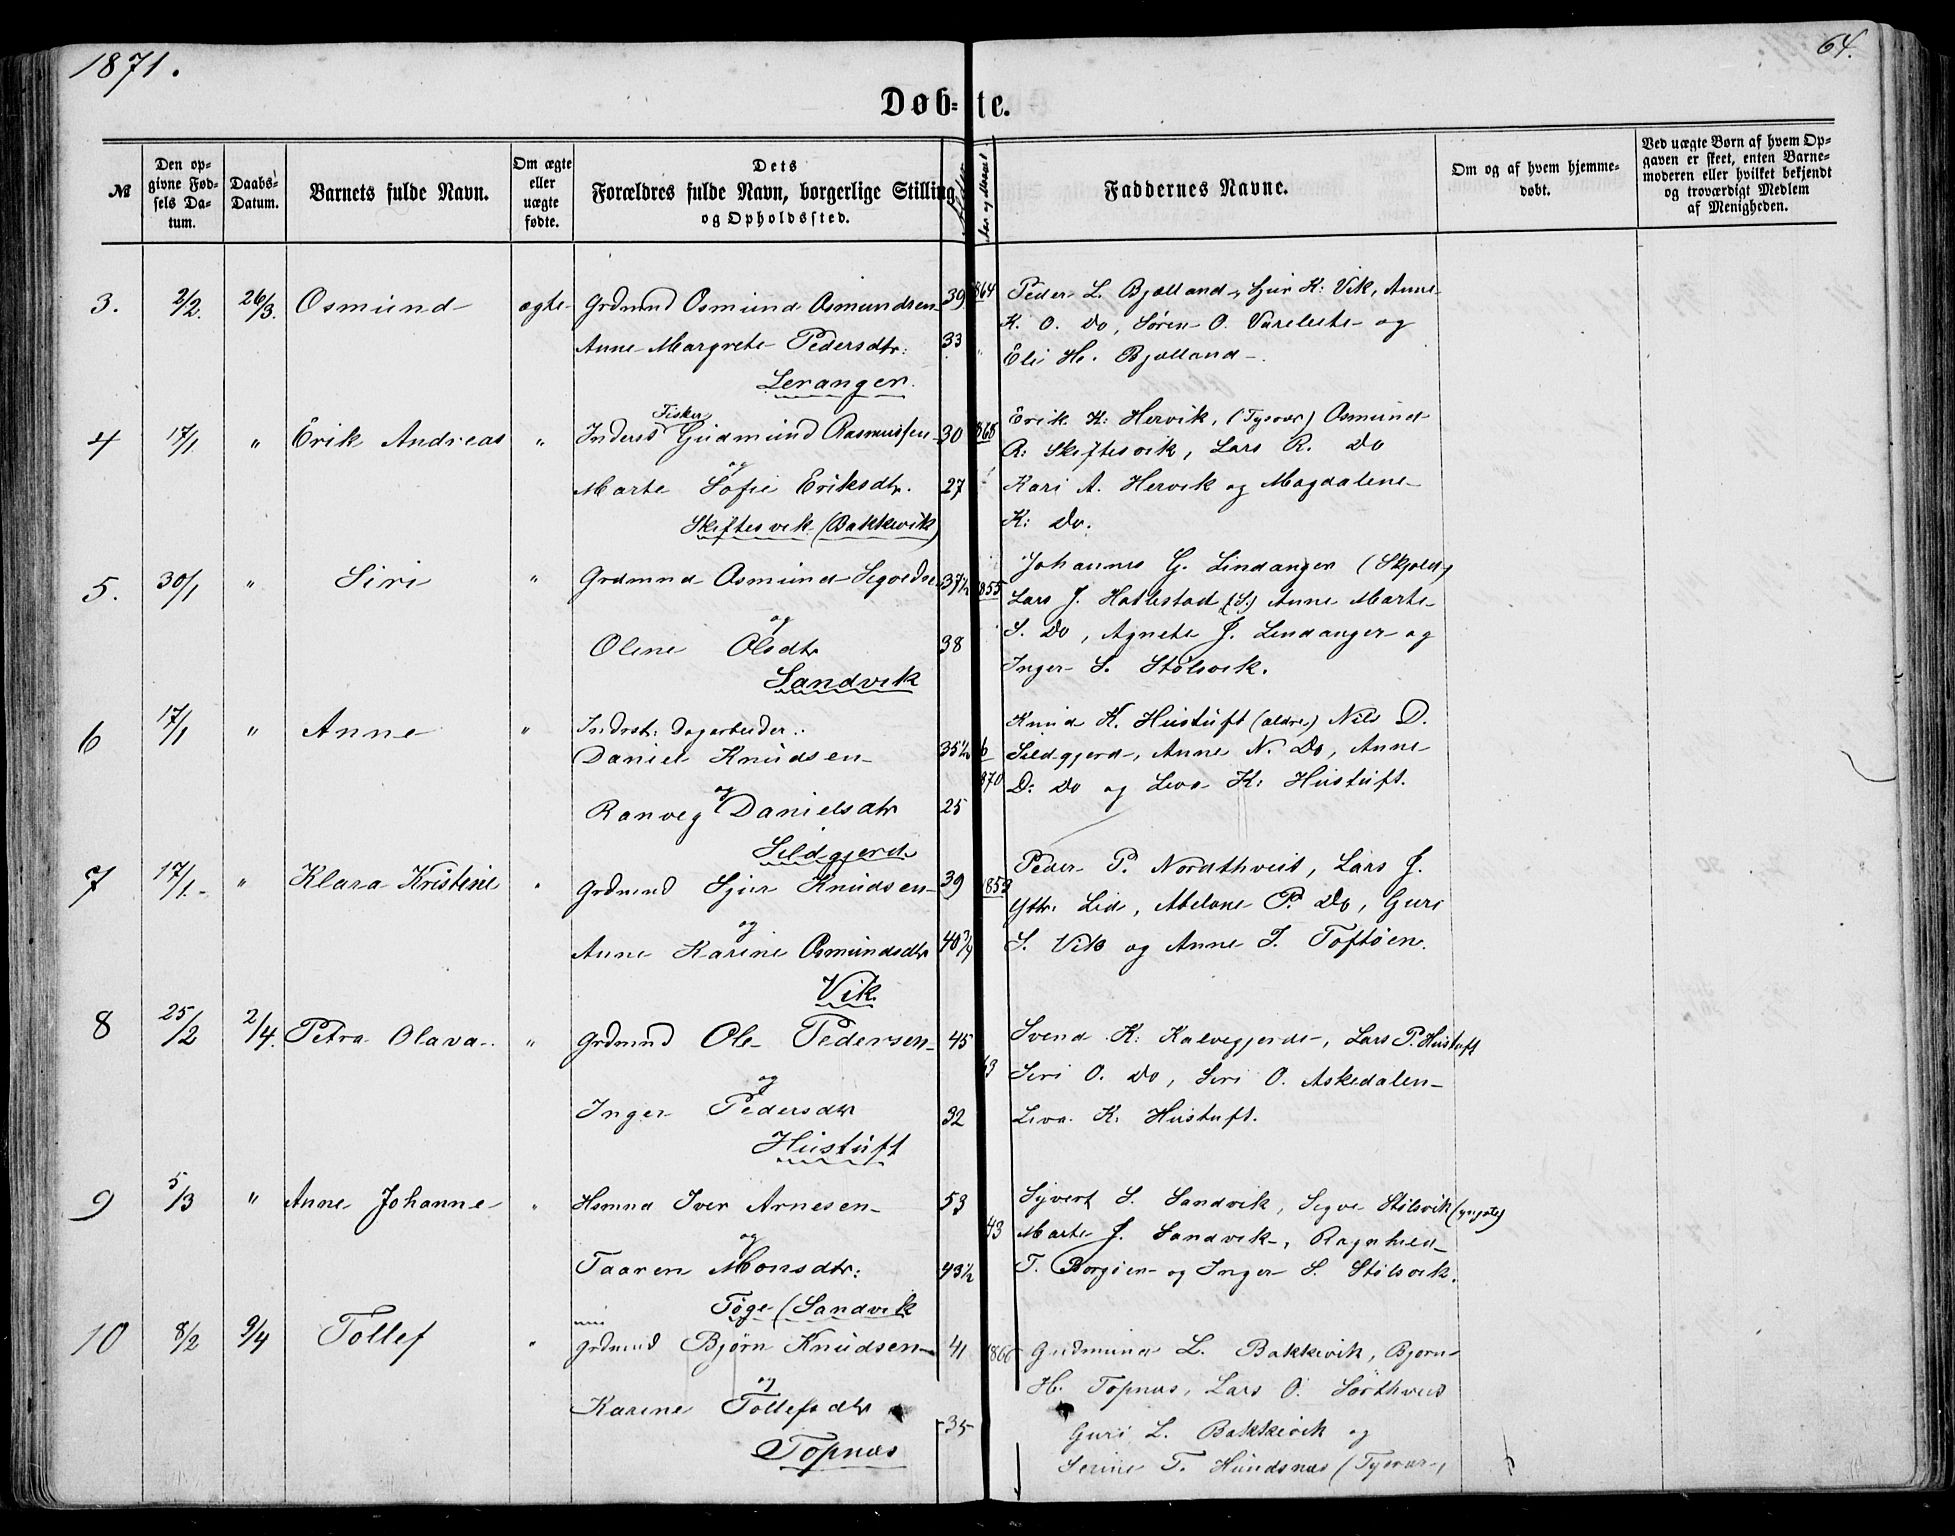 1871.
64.
Døb-te.
№
Den opgivne Fødsels Datum.
Daabs-Datum.
Barnets fulde Navn.
Om ægte eller uægte fødte.
Dets Forældres fulde Navn, borgerlige Stilling og Opholdssted.
Faddernes Navne.
Om og af hvem hjemmedøbt.
Ved uægte Børn af hvem Opgaven er skeet, enten Barnemoderen eller hvilket bekjendt og troværdigt Medlem af Menigheden.
3. 2/2. 26/3. Osmund ægte Grdmnd Osmund Osmundsen 39 864 Peder L. Bjelland, Sjur K: Vik, Anne
K. O. Do, Søren O. Vareleite og
Anne Margrete Pedersdtr: 33 " Eli H. Bjelland.
Leranger.
4 17/1. " Erik Andreas " Inderst Fisker Gudmund Rasmussen 30 865 Erik K: Hervik, (Tysvær) Osmund
R: Skiftesvik, Lars R. Do
og
Marte Sofie Eriksdtr. 27 Kari A. Hervik og Magdalene
Skiftesvik (Bakkevik) K: Do.
5. 30/1 " Siri " Grdmnd Osmund Segvedsen 37½ 855 Johannes G. Lindanger (Skjold)
Lars J. Hatlestad (S.) Anne Marte
og
Olene Olsdtr 38 S. Do, Agnete J. Lindanger og
Sandvik Inger S. Stølsvik.
6 17/1 " Anne " Indrst: dagarbeider.. Knud K. Hustuft (ældre) Nils D.
Daniel Knudsen 35½ 6 Sildgjerd, Anne N. Do, Anne
870 D: Do og Liva K: Hustuft.
og
Ranveg Danielsdtr 25
Sildgjerd
7 17/1. " Klara Kristine " Grdmnd Sjur Knudsen 39 853 Peder P. Nordthveit, Lars J.
Yttr. Lid, Abelone P. Do, Guri
og
Anne Karine Osmundsdtr 40¾ S. Vik og Anne J. Toftøen.
Vik
8 25/2 2/4. Petra Olava. " Grdmnd Ole Pedersen 45 Svend K: Kalvegjerde, Lars P. Hustuft
63 Siri O. Do, Siri O. Askedalen
og
Inger Pedersdtr 32 Liva K. Hustuft.
Hustuft
9 5/3 " Anne Johanne " Hsmnd Iver Arnesen 53 Syvert S. Sandvik, Segve Stølsvik (yngste)
43 Marte J. Sandvik, Ragnhild
og
Taaren Monsdtr: 43½ T. Borgøen og Inger S. Stølsvik.
Tøge (Sandvik
10 8/2 9/4 Tollef " Grdmnd Bjørn Knudsen 41 866 Gudmund L. Bakkevik, Bjørn
H. Topnæs, Lars O. Sørthveid
og
Karine Tollefsdtr 35 Guri L. Bakkevik og
Topnæs Serine T. Hundsnæs (Tysvær,